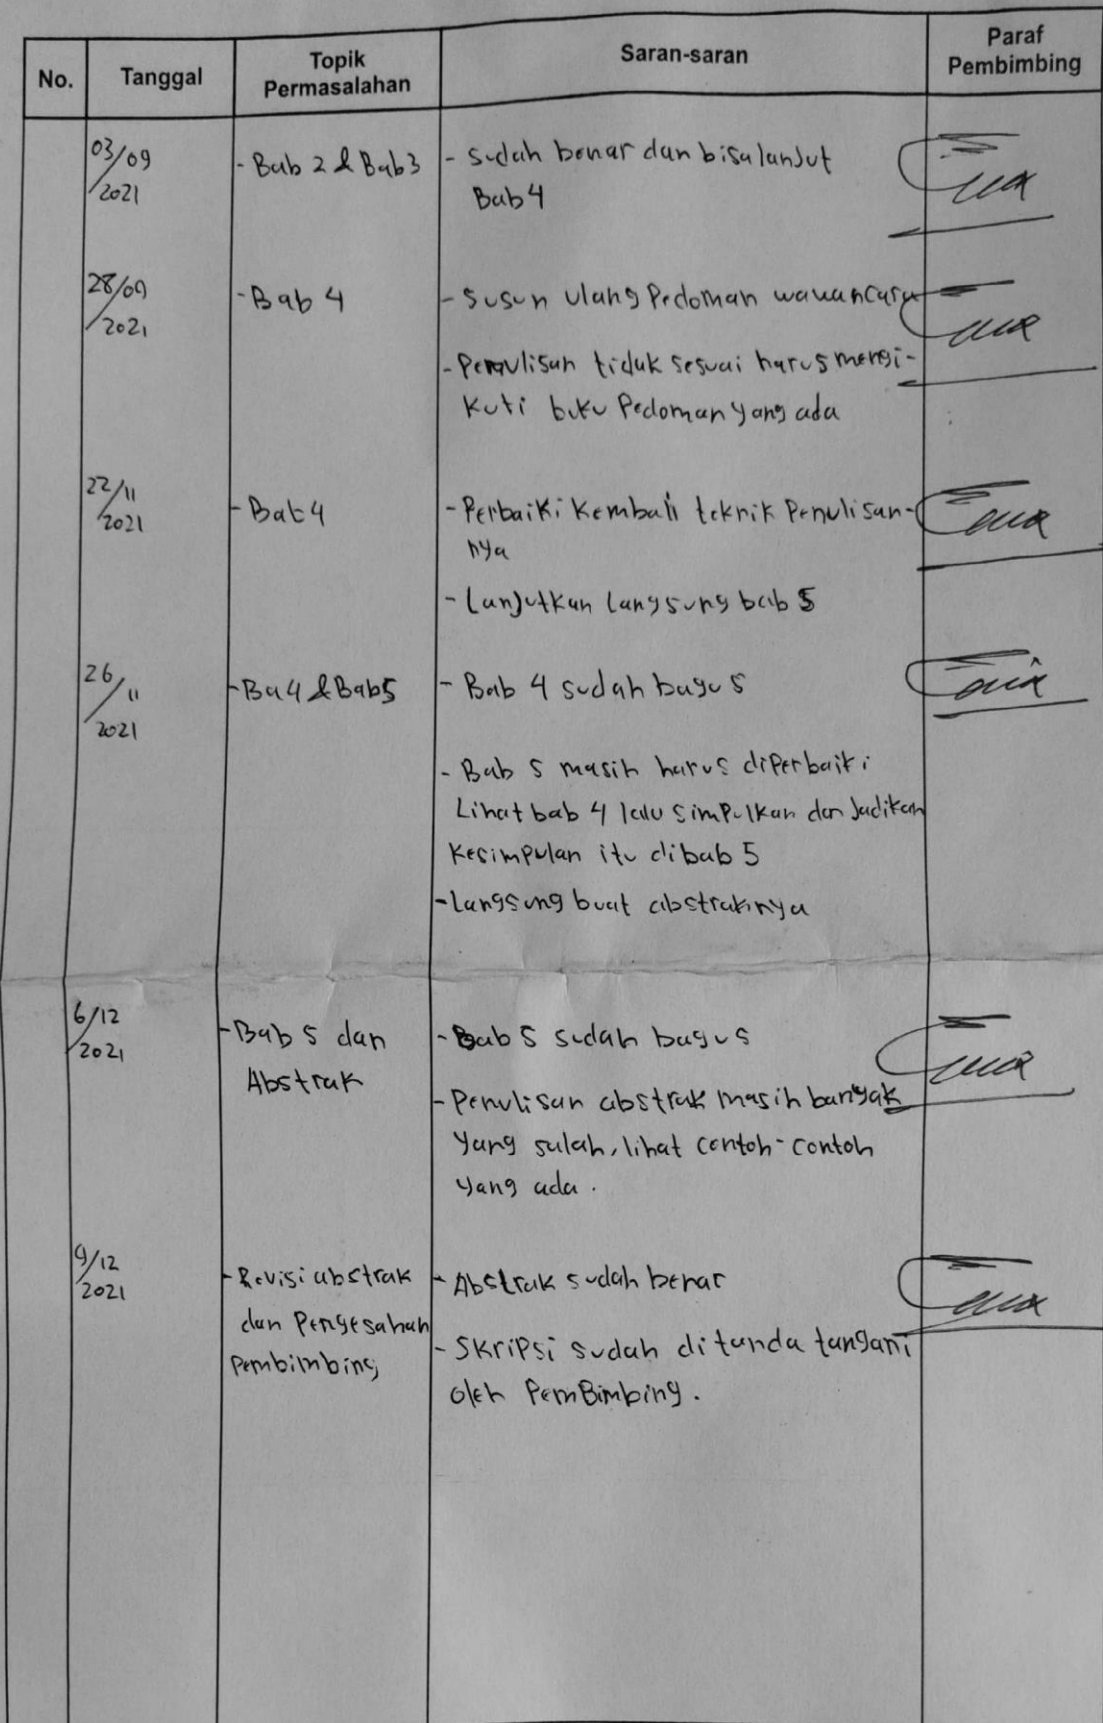 No.
Tanggal
Topik
Permasalahan
Saran-saran
Paraf
Pembimbing
03/09
2021
- Bab 2 & Bab3
- Sudah benar dan bisa lanjut
Bab 4
28/09
2021
- Bab 4
- Susun ulang Pedoman wawancara
- Penulisan tidak sesuai harus mengi-
kuti buku Pedoman yang ada
22/11
2021
- Bab 4
- Perbaiki Kembali teknik Penulisan-
nya
- Lanjutkan langsung bab 5
26/11
2021
- Ba4 & Bab5
- Bab 4 sudah bagus
- Bab 5 masih harus diperbaiki
Lihat bab 4 lalu simpulkan dan Jadikan
Kesimpulan itu dibab 5
- Langsung buat abstraknya
6/12
2021
- Bab 5 dan
Abstrak
- Bab 5 sudah bagus
- Penulisan abstrak masih banyak
yang salah, lihat contoh-contoh
yang ada.
9/12
2021
- Revisi abstrak
dan Pengesahan
Pembimbing
- Abstrak sudah benar
- Skripsi sudah ditanda tangani
oleh PemBimbing.